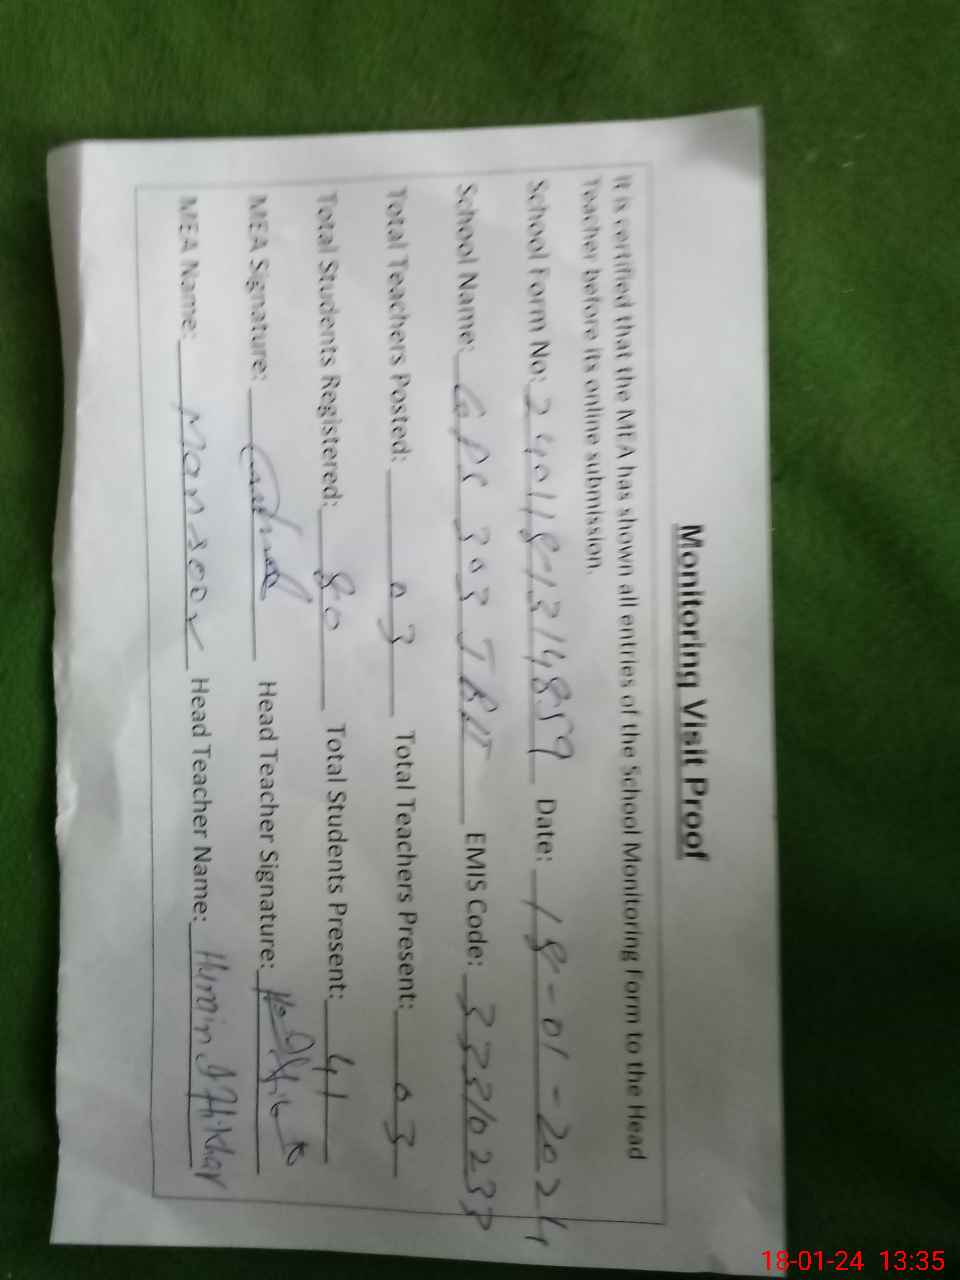 Monitoring Visit Proof
It is certified that the MEA has shown all entries of the School Monitoring Form to the Head
Teacher before its online submission.
School Form No: 240118-1314859 Date: 18-01-2024
School Name: GPS 303 EMIS Code: 33210233
Total Teachers Posted: 03 Total Teachers Present: 03
Total Students Registered: 80 Total Students Present: 41
MEA Signature: Head Teacher Signature:
MEA Name: Mansoor Head Teacher Name: Iftikhar
18-01-24 13:35